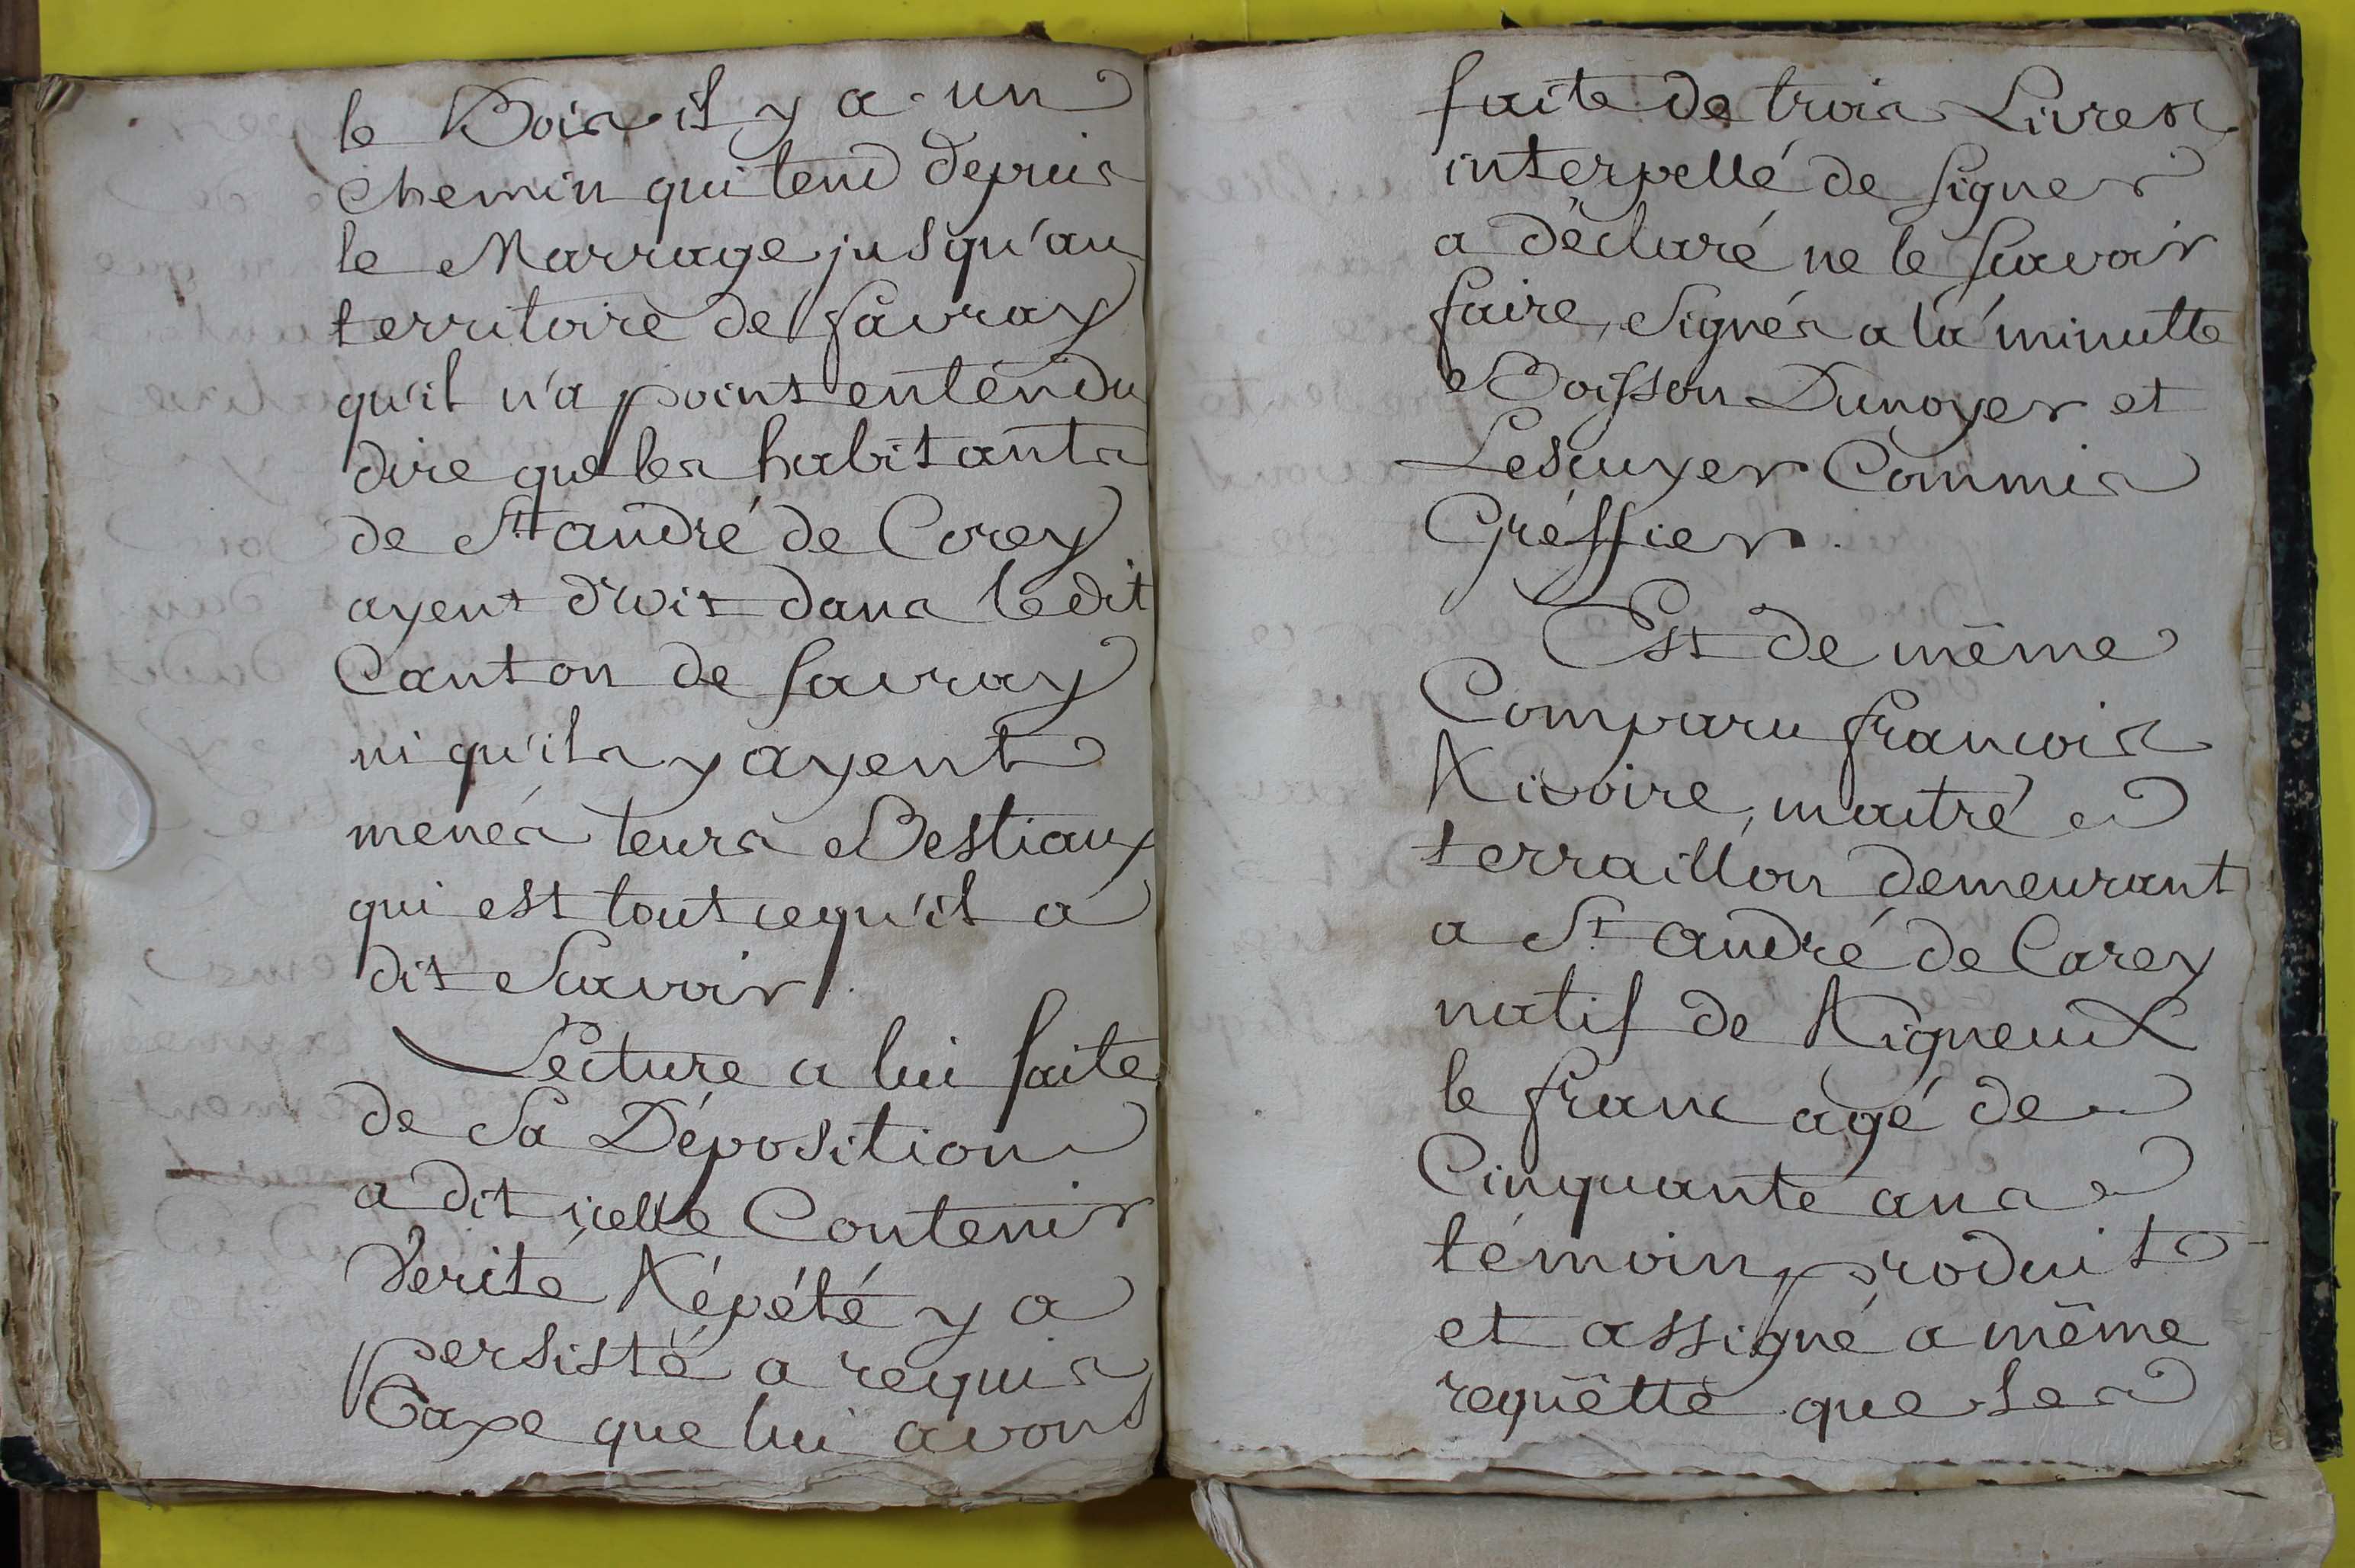 le Bois il y a un
chemin qui tend depuis
le Marrage jusqu'au
territoire de favray
qu'il n'a point entendu
dire que les habitants
de St andré de Corcy
ayent droit dans ledit
Canton de favray
ni qu'ils y ayent
menés leurs Bestiaux
qui est tout cequ'il a
dit Scavoir.
Lecture a lui faite
de Sa Déposition
a dit icelle Contenir
Verité Répété y a
persisté a requis
Taxe que lui avons
faite de trois Livres
interpellé de signer
a déclaré ne le scavoir
faire, Signés a la minutte
Boisson Dunoyer et
Lescuyer Commis
Gréffier.
Est de même
Comparu francois
Rivoire, maitre
terraillon demeurant
a St andré de Corcy
natif de Rigneux
le franc agé de
Cinquante ans
témoin produit
et assigné a même
requêtte que les